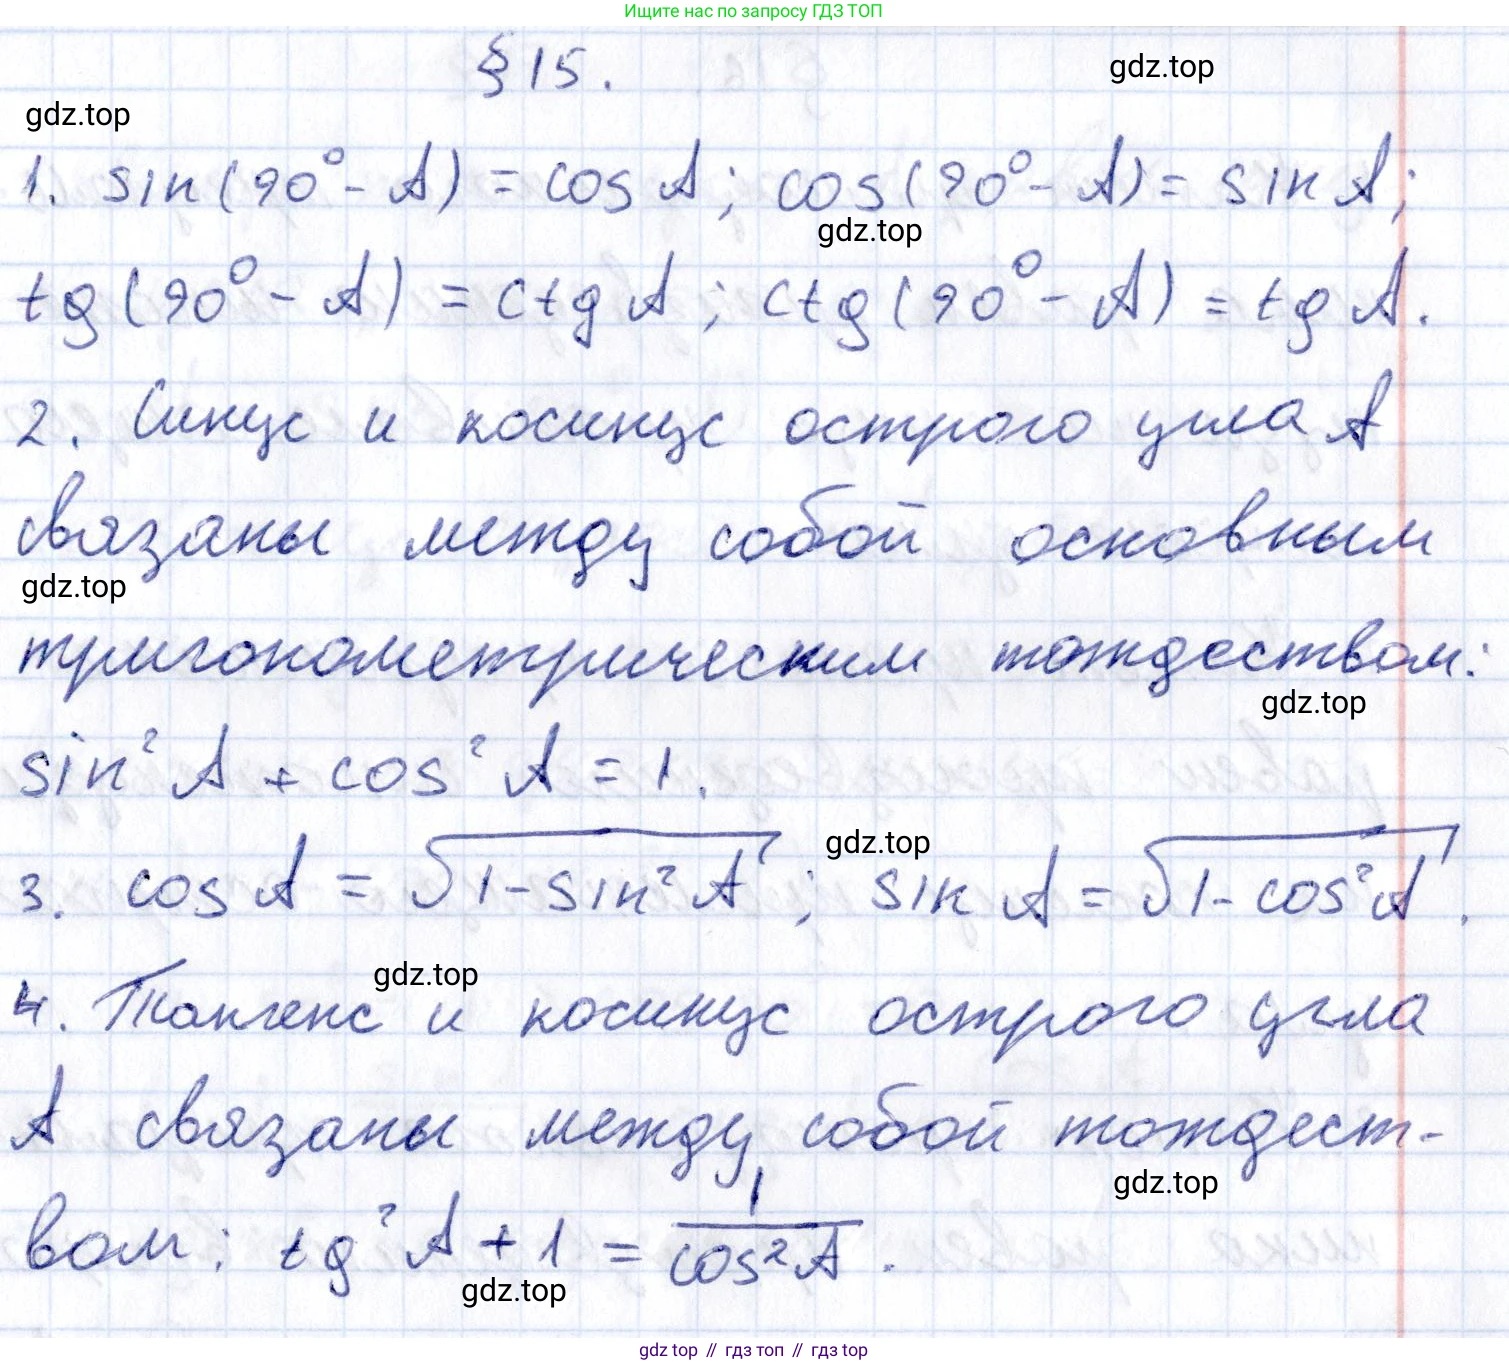 Ищите нас по запросу ГДЗ ТОП
§ 15.
gdz.top
gdz.top
1. sin(90° - A) = cos A; cos(90° - A) = sin A;
gdz.top
tg(90° - A) = ctg A; ctg(90° - A) = tg A.
2. Синус и косинус острого угла A
связаны между собой основным
gdz.top
тригонометрическим тождеством:
gdz.top
sin² A + cos² A = 1.
gdz.top
3. cos A = √(1 - sin² A); sin A = √(1 - cos² A).
gdz.top
4. Тангенс и косинус острого угла
A связаны между собой тождест-
gdz.top
вом: tg² A + 1 = 1/cos² A.
gdz.top
gdz.top // гдз топ // гдз top